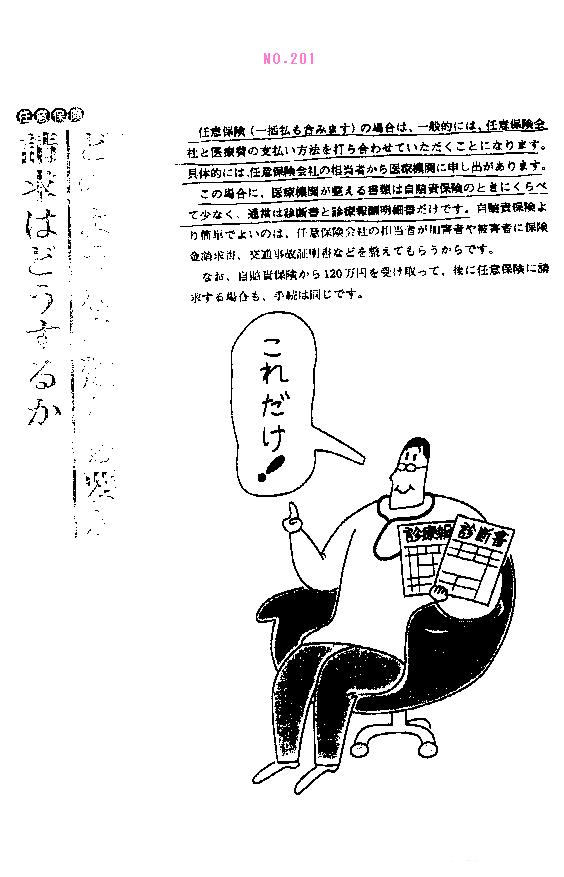 NO.201
任意保険
請求はどうするか
任意保険(一括払も含みます)の場合は、一般的には、任意保険会
社と医療費の支払い方法を打ち合わせていただくことになります。
具体的には、任意保険会社の担当者から医療機関に申し出があります。
この場合に、医療機関が整える書類は自賠責保険のときにくらべ
て少なく、通常は診断書と診療報酬明細書だけです。自賠責保険よ
り簡単でよいのは、任意保険会社の担当者が加害者や被害者に保険
金請求書、交通事故証明書などを整えてもらうからです。
なお、自賠責保険から120万円を受け取って、後に任意保険に請
求する場合も、手続は同じです。
これだけ!
診療報
診断書